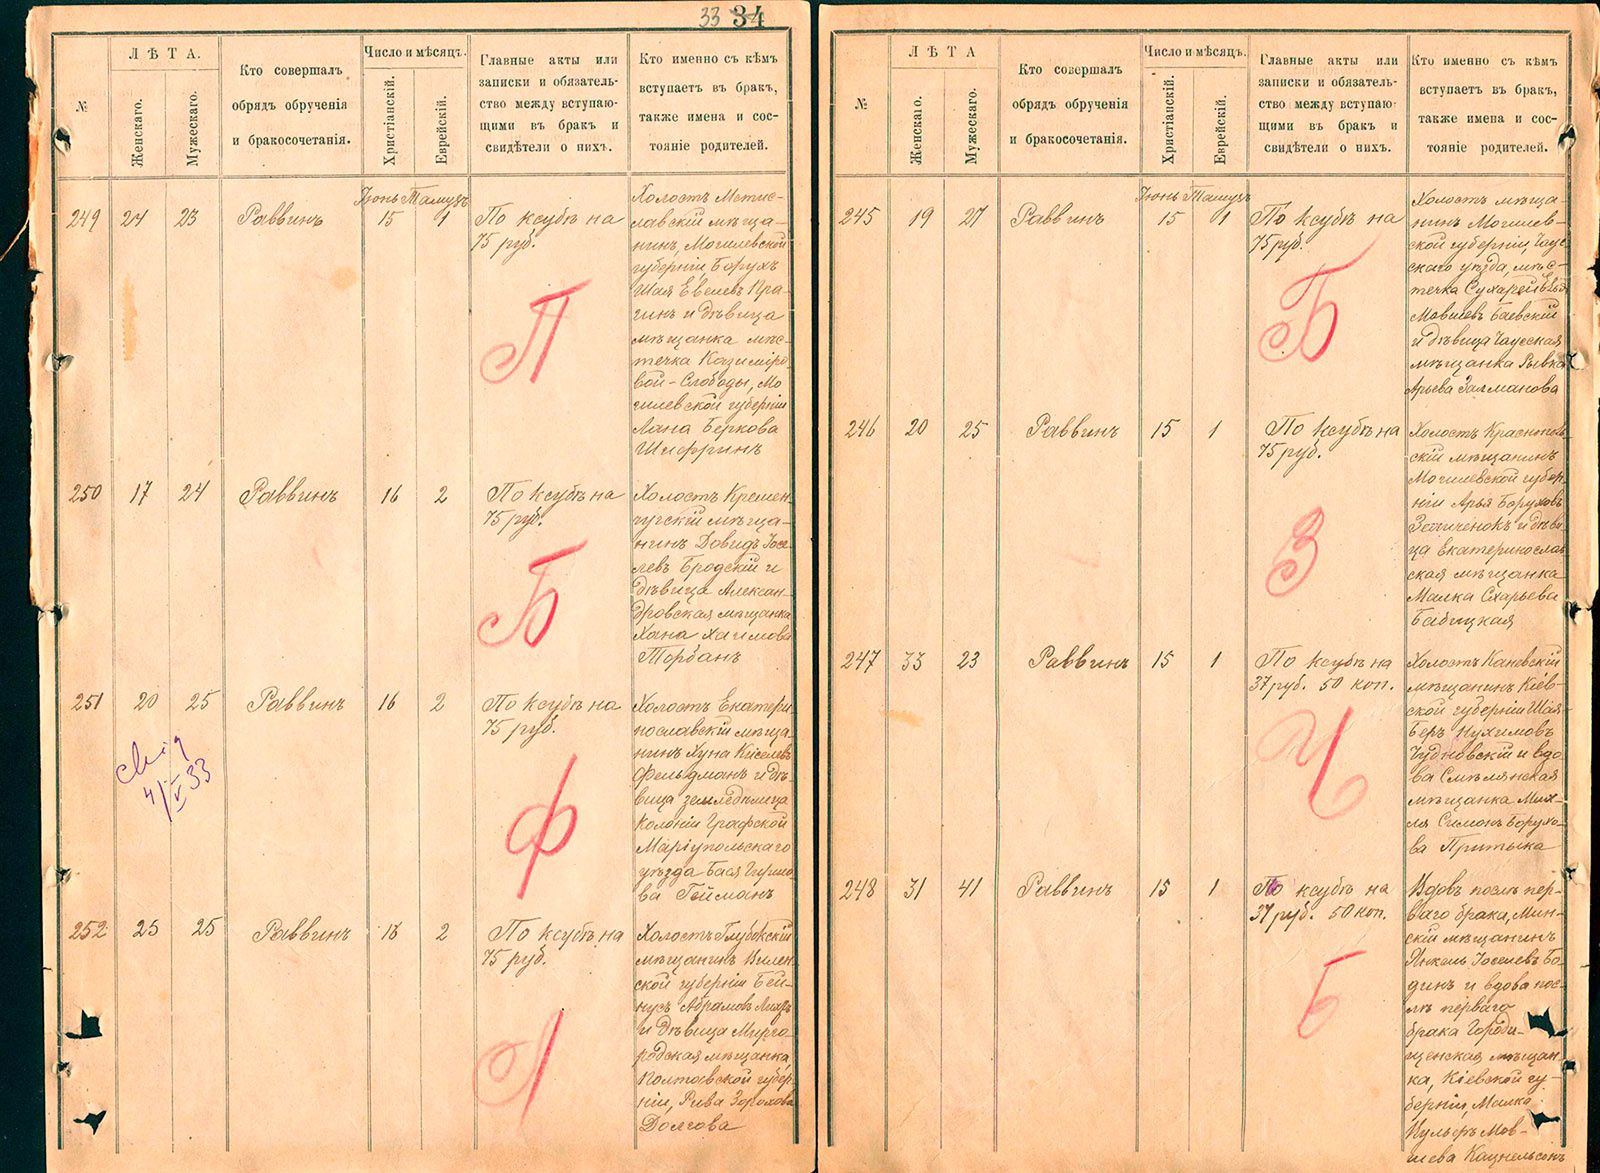 33 34
№
ЛѢТА.
Женскаго.
Мужескаго.
Кто совершалъ
обрядъ обрученія
и бракосочетанія.
Число и мѣсяцъ.
Христіанскій.
Еврейскій.
Главные акты или
записки и обязатель-
ство между вступаю-
щими въ бракъ и
свидѣтели о нихъ.
Кто именно съ кѣмъ
вступаетъ въ бракъ,
также имена и сос-
тояніе родителей.
Іюнь Тамузъ
249 21 23 Раввинъ 15 1
По ксубѣ на
75 руб.
П
Холостъ Мстис-
лавскій мѣща-
нинъ, Могилевской
губерніи, Борухъ
Шая Евелевъ Пра-
гинъ и дѣвица
мѣщанка мѣс-
течка Казимиро-
вой-Слободы, Мо
гилевской губерніи
Лана Беркова
Шифринъ
250 17 24 Раввинъ 16 2
По ксубѣ на
75 руб.
Б
Холостъ Кремен-
чугскій мѣща-
нинъ Довидъ Іосе-
левъ Бродскій и
дѣвица Алексан-
дровская мѣщанка
Хана Хаимова
Торбанъ
251 20 25 Раввинъ 16 2
По ксубѣ на
75 руб.
4/V 33
Ф
Холостъ Екатери
нославскій мѣща-
нинъ Хуна Киселевъ
Фельдманъ и дѣ-
вица земледѣлица
Колоніи Графской
Маріупольскаго
уѣзда Бася
ва Гейманъ
252 25 25 Раввинъ 16 2
По ксубѣ на
75 руб.
Л
Холостъ Глубокскій
мѣщанинъ Вилен-
ской губерніи Бей-
нусъ Абрамовъ
и дѣвица Мирго-
родская мѣщанка,
Полтавской губер-
ніи, Рива Зорохова
Долгова
№
ЛѢТА
Женскаго.
Мужескаго.
Кто совершалъ
обрядъ обрученія
и бракосочетанія.
Число и мѣсяцъ.
Христіанскій.
Еврейскій.
Главные акты или
записки и обязатель-
ство между вступаю-
щими въ бракъ и
свидѣтели о нихъ.
Кто именно съ кѣмъ
вступаетъ въ бракъ,
также имена и сос-
тояніе родителей.
Іюнь Тамузъ
245 19 27 Раввинъ 15 1
По ксубѣ на
75 руб.
Б
Холостъ мѣща-
нинъ Могилев-
ской губерніи, Чаус-
скаго уѣзда, мѣс-
течка Сухарей
Мовшевъ Баевскій
и дѣвица Чаусская
мѣщанка Рывка
Арьева Залманова
246 20 25 Раввинъ 15 1
По ксубѣ на
75 руб.
З
Холостъ
скій мѣщанинъ
Могилевской губер-
ніи Арья Боруховъ
и дѣви-
ца Екатеринослав-
ская мѣщанка
Малка Схарьева
Бабицкая
247 33 23 Раввинъ 15 1
По ксубѣ на
37 руб. 50 коп.
Ч
Холостъ Каневскій
мѣщанинъ Кіев-
ской губерніи Шая-
Беръ Нухимовъ
Чудновскій и вдо-
ва Смѣлянская
мѣщанка Мих-
ля Симонъ Борухо-
ва Притыка
248 31 41 Раввинъ 15 1
По ксубѣ на
37 руб. 50 коп.
Б
Вдовъ послѣ пер-
ваго брака, Мин-
скій мѣщанинъ
Янкель Іоселевъ Бо-
динъ и вдова пос-
лѣ перваго
брака Городи-
щенская мѣщан-
ка, Кіевской гу-
берніи, Малка
Мов-
шева Кацнельсонъ